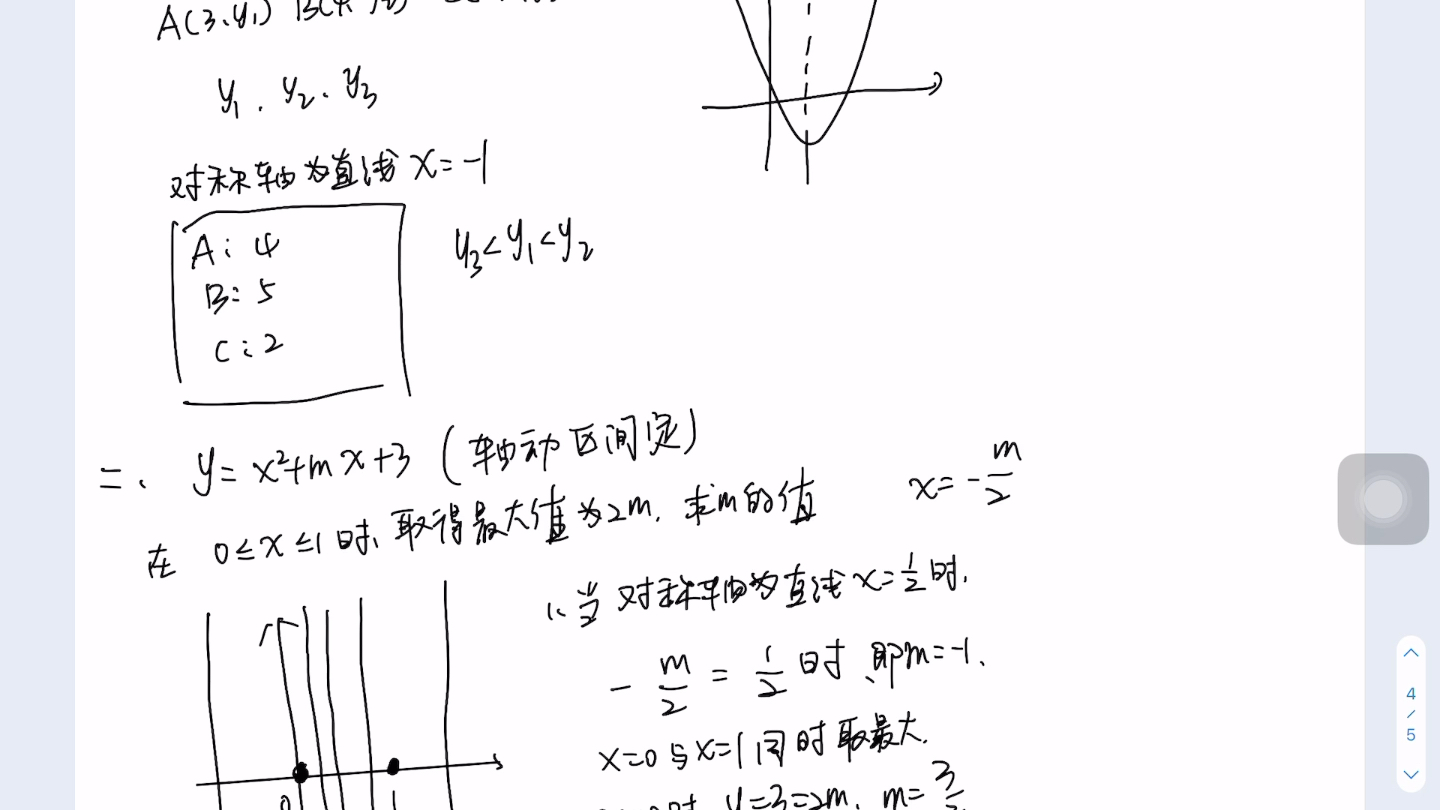 A(3,y₁)
y₁、y₂、y₃
对称轴为直线 x=-1
A: 4
B: 5
C: 2
y₃<y₁<y₂
二、y=x²+mx+3 (轴动区间定)
在 0≤x≤1时,取得最大值为2m,求m的值
x=-m/2
1、当对称轴为直线x=1/2时,
-m/2=1/2时,即m=-1、
x=0与x=1同时取最大.
y=3=2m, m=3/
0
1
4/5